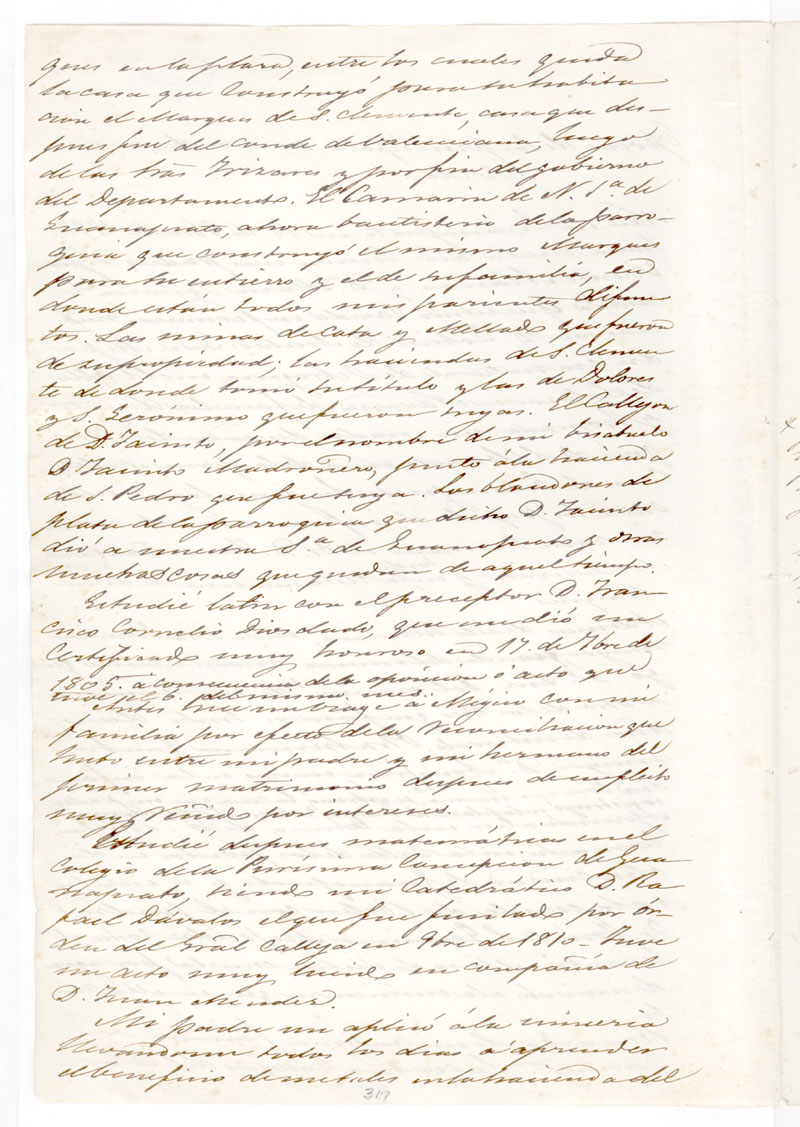 ques en la plaza, entre los cuales queda
la casa que construyó para su habita
cion el Marques de S. Clemente, casa que des-
pues fue del conde de Valenciana, luego
de las tras Irizares y por fin del gobierno
del Departamento. El Camarin de N. S.ª de
Guanajuato, ahora bautisterio de la parro-
quia que construyó el mismo Marques
para su entierro y el de su familia, en
donde están todos mis parientes difun
tos. Las minas de Cata y Mellado que fueron
de su propiedad; las haciendas de S. Clemen
te de donde tomó su titulo y las de Dolores
y S. Gerónimo que fueron suyas. El Callejon
de D. Jacinto, por el nombre de mi bisabuelo
D Jacinto Madroñero, junto á la hacienda
de S. Pedro que fue suya. Los blandones de
plata de la parroquia que dicho D. Jacinto
dió a nuestra S.ª de Guanajuato y otras
muchas cosas que quedan de aquel tiempo.
Estudié latin con el preceptor D. Fran
cisco Cornelio Diosdado, que me dió un
Certificado muy honroso en 17. de 7bre de
1805. á consecuencia de la oposicion ó acto que
tuve el 6. del mismo mes.
Antes hice un viage a Mégico con mi
familia por efecto de la reconciliacion que
hubo entre mi padre y mi hermano del
primer matrimonio despues de un pleito
muy reñido por intereses.
Estudié despues matemática en el
Colegio de la Purísima Concepcion de Gua
najuato, siendo mi Catedrático D. Ra
fael Dávalos el que fue fusilado por ór-
den del Gral Calleja en 9bre de 1810 - Tuve
un acto muy lucido en compañia de
D. Juan Mendez.
Mi padre me aplicó á la mineria
llevandome todos los dias á aprender
el beneficio de metales en la hacienda del
317